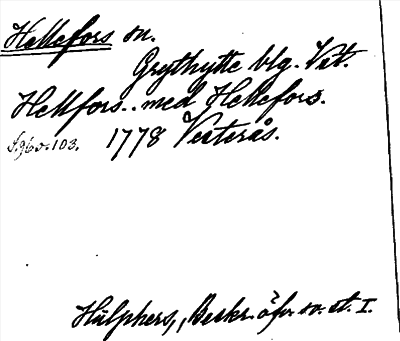 Hellefors sn.
Grythytte blg. Vst.
Hellfors.. med Hellefors.
s. 96 o. 103. 1778 Vesterås.
Hülphers, Beskr. öfv. sv. st. I.